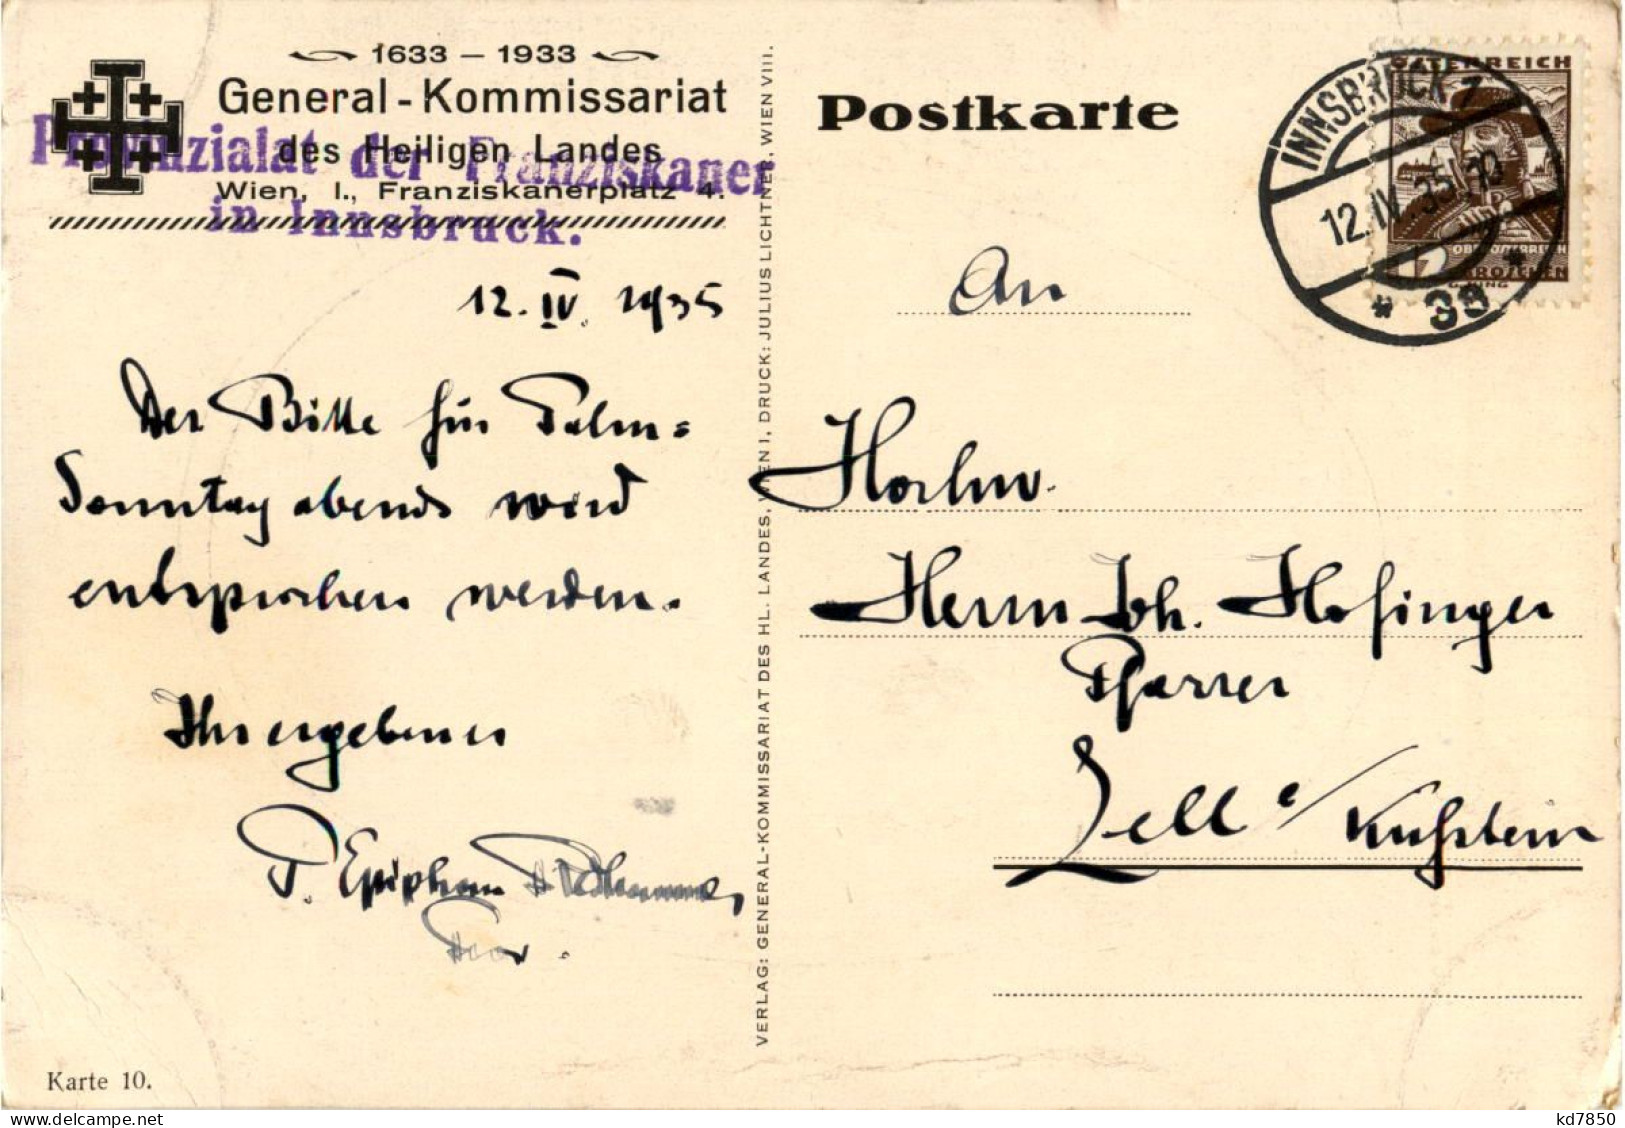 1633 – 1933
General-Kommissariat
des Heiligen Landes
Wien, I., Franziskanerplatz 4.
Provinzialat der Franziskaner
in Innsbruck.
12. IV. 1935
Der Bitte für Palm-
Sonntag abends wird
entsprochen werden.
Ihr ergebener
P. Epiphan
Karte 10.
VERLAG: GENERAL-KOMMISSARIAT DES HL. LANDES, WIEN I. DRUCK: JULIUS LICHTNER, WIEN VIII.
Postkarte
ÖSTERREICH
OBERÖSTERREICH
GROSCHEN
INNSBRUCK 1
12.IV.35
* 3g *
An
Hochw.
Herrn Joh. Hofinger
Pfarrer
Zell b/Kufstein
kd7850